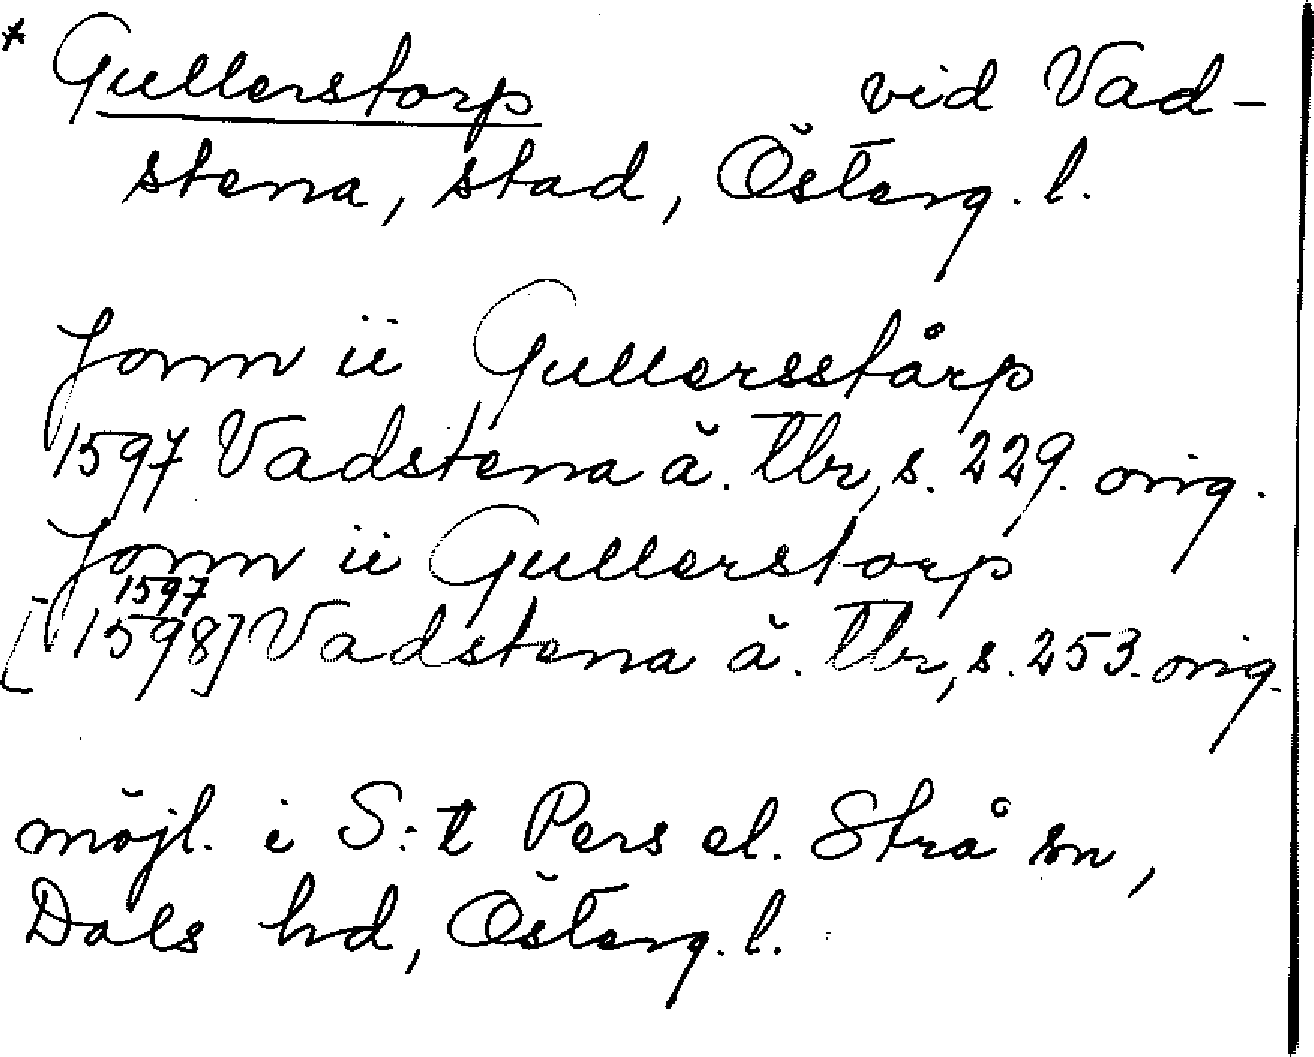 * Gullerstorp vid Vad-
stena, stad, Österg. l.
Jonn ii Gullersstårp
1597 Vadstena ä. Tbr, s. 229. orig.
Jonn ii Gullerstorp
1597
[1598] Vadstena ä. Tbr, s. 253. orig.
möjl. i S:t Pers el. Strå sn,
Dals hd, Österg. l.